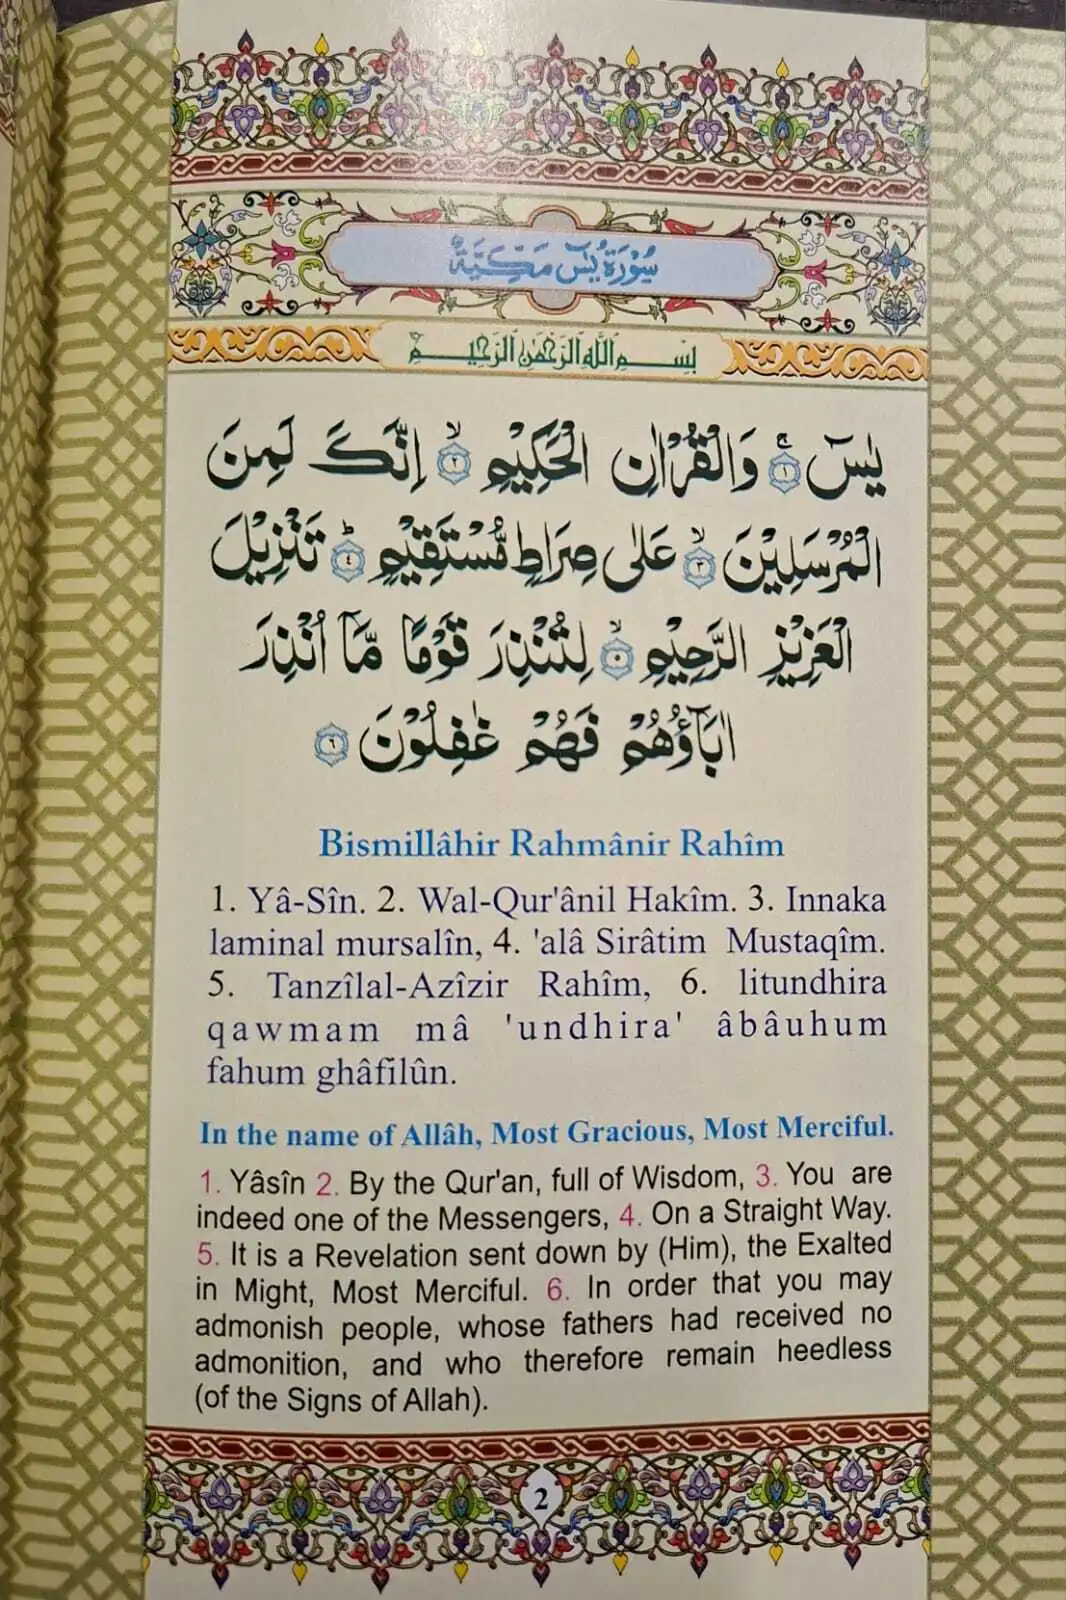 سُوْرَةُ يٰسٓ مَكِّيَّةٌ
بِسْمِ اللّٰهِ الرَّحْمٰنِ الرَّحِيْمِ
يٰسٓ ۚ ١ وَالْقُرْاٰنِ الْحَكِيْمِ ۙ ٢ اِنَّكَ لَمِنَ
الْمُرْسَلِيْنَ ۙ ٣ عَلٰى صِرَاطٍ مُّسْتَقِيْمٍ ؕ ٤ تَنْزِيْلَ
الْعَزِيْزِ الرَّحِيْمِ ۙ ٥ لِتُنْذِرَ قَوْمًا مَّاۤ اُنْذِرَ
اٰبَآؤُهُمْ فَهُمْ غٰفِلُوْنَ ٦
Bismillâhir Rahmânir Rahîm
1. Yâ-Sîn. 2. Wal-Qur'ânil Hakîm. 3. Innaka
laminal mursalîn, 4. 'alâ Sirâtim Mustaqîm.
5. Tanzîlal-Azîzir Rahîm, 6. litundhira
qawmam mâ 'undhira' âbâuhum
fahum ghâfilûn.
In the name of Allâh, Most Gracious, Most Merciful.
1. Yâsîn 2. By the Qur'an, full of Wisdom, 3. You are
indeed one of the Messengers, 4. On a Straight Way.
5. It is a Revelation sent down by (Him), the Exalted
in Might, Most Merciful. 6. In order that you may
admonish people, whose fathers had received no
admonition, and who therefore remain heedless
(of the Signs of Allah).
2